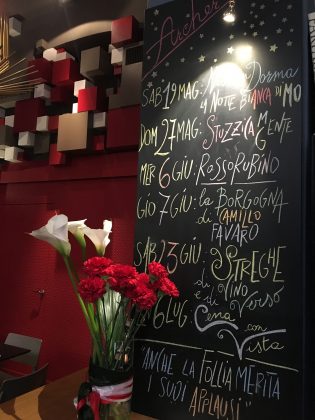 Archer
SAB 19 MAG: Dorma
4 NOTTE BIANCA DI MO
DOM 27 MAG: STUZZICA MENTE
MER 6 GIU: ROSSORUBINO
GIO 7 GIU: la BORGOGNA
di CAMILLO
FAVARO
SAB 23 GIU: STREGHE
di VINO
e di VERSO
6 LUG: Cena con
Vista
"ANCHE LA FOLLIA MERITA
I SUOI APPLAUSI"